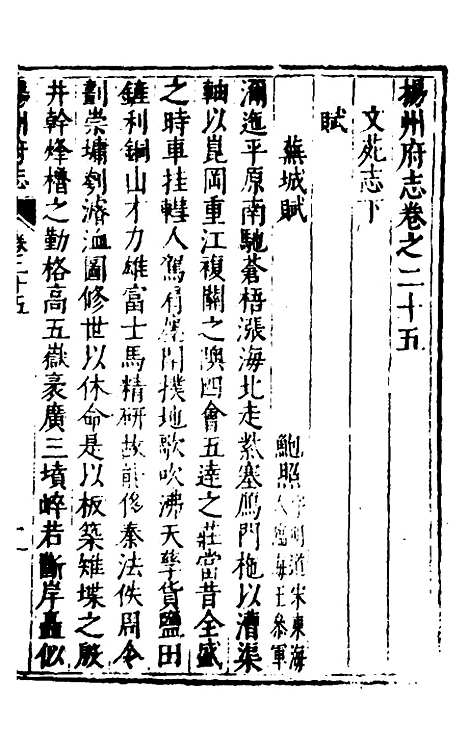 揚州府志卷之二十五
文苑志下
賦
蕪城賦
鮑照字明遠宋東海人臨海王參軍
瀰迤平原南馳蒼梧漲海北走紫塞鴈門柂以漕渠
軸以崑岡重江複關之隩四會五達之莊當昔全盛
之時車挂轊人駕肩廛閈撲地歌吹沸天孳貨鹽田
鏟利銅山才力雄富士馬精研故能侈秦法佚周令
劃崇墉刳濬洫圖修世以休命是以板築雉堞之殷
井幹烽櫓之勤格高五嶽袤廣三墳崪若斷岸矗似
揚州府志
卷二十五
一